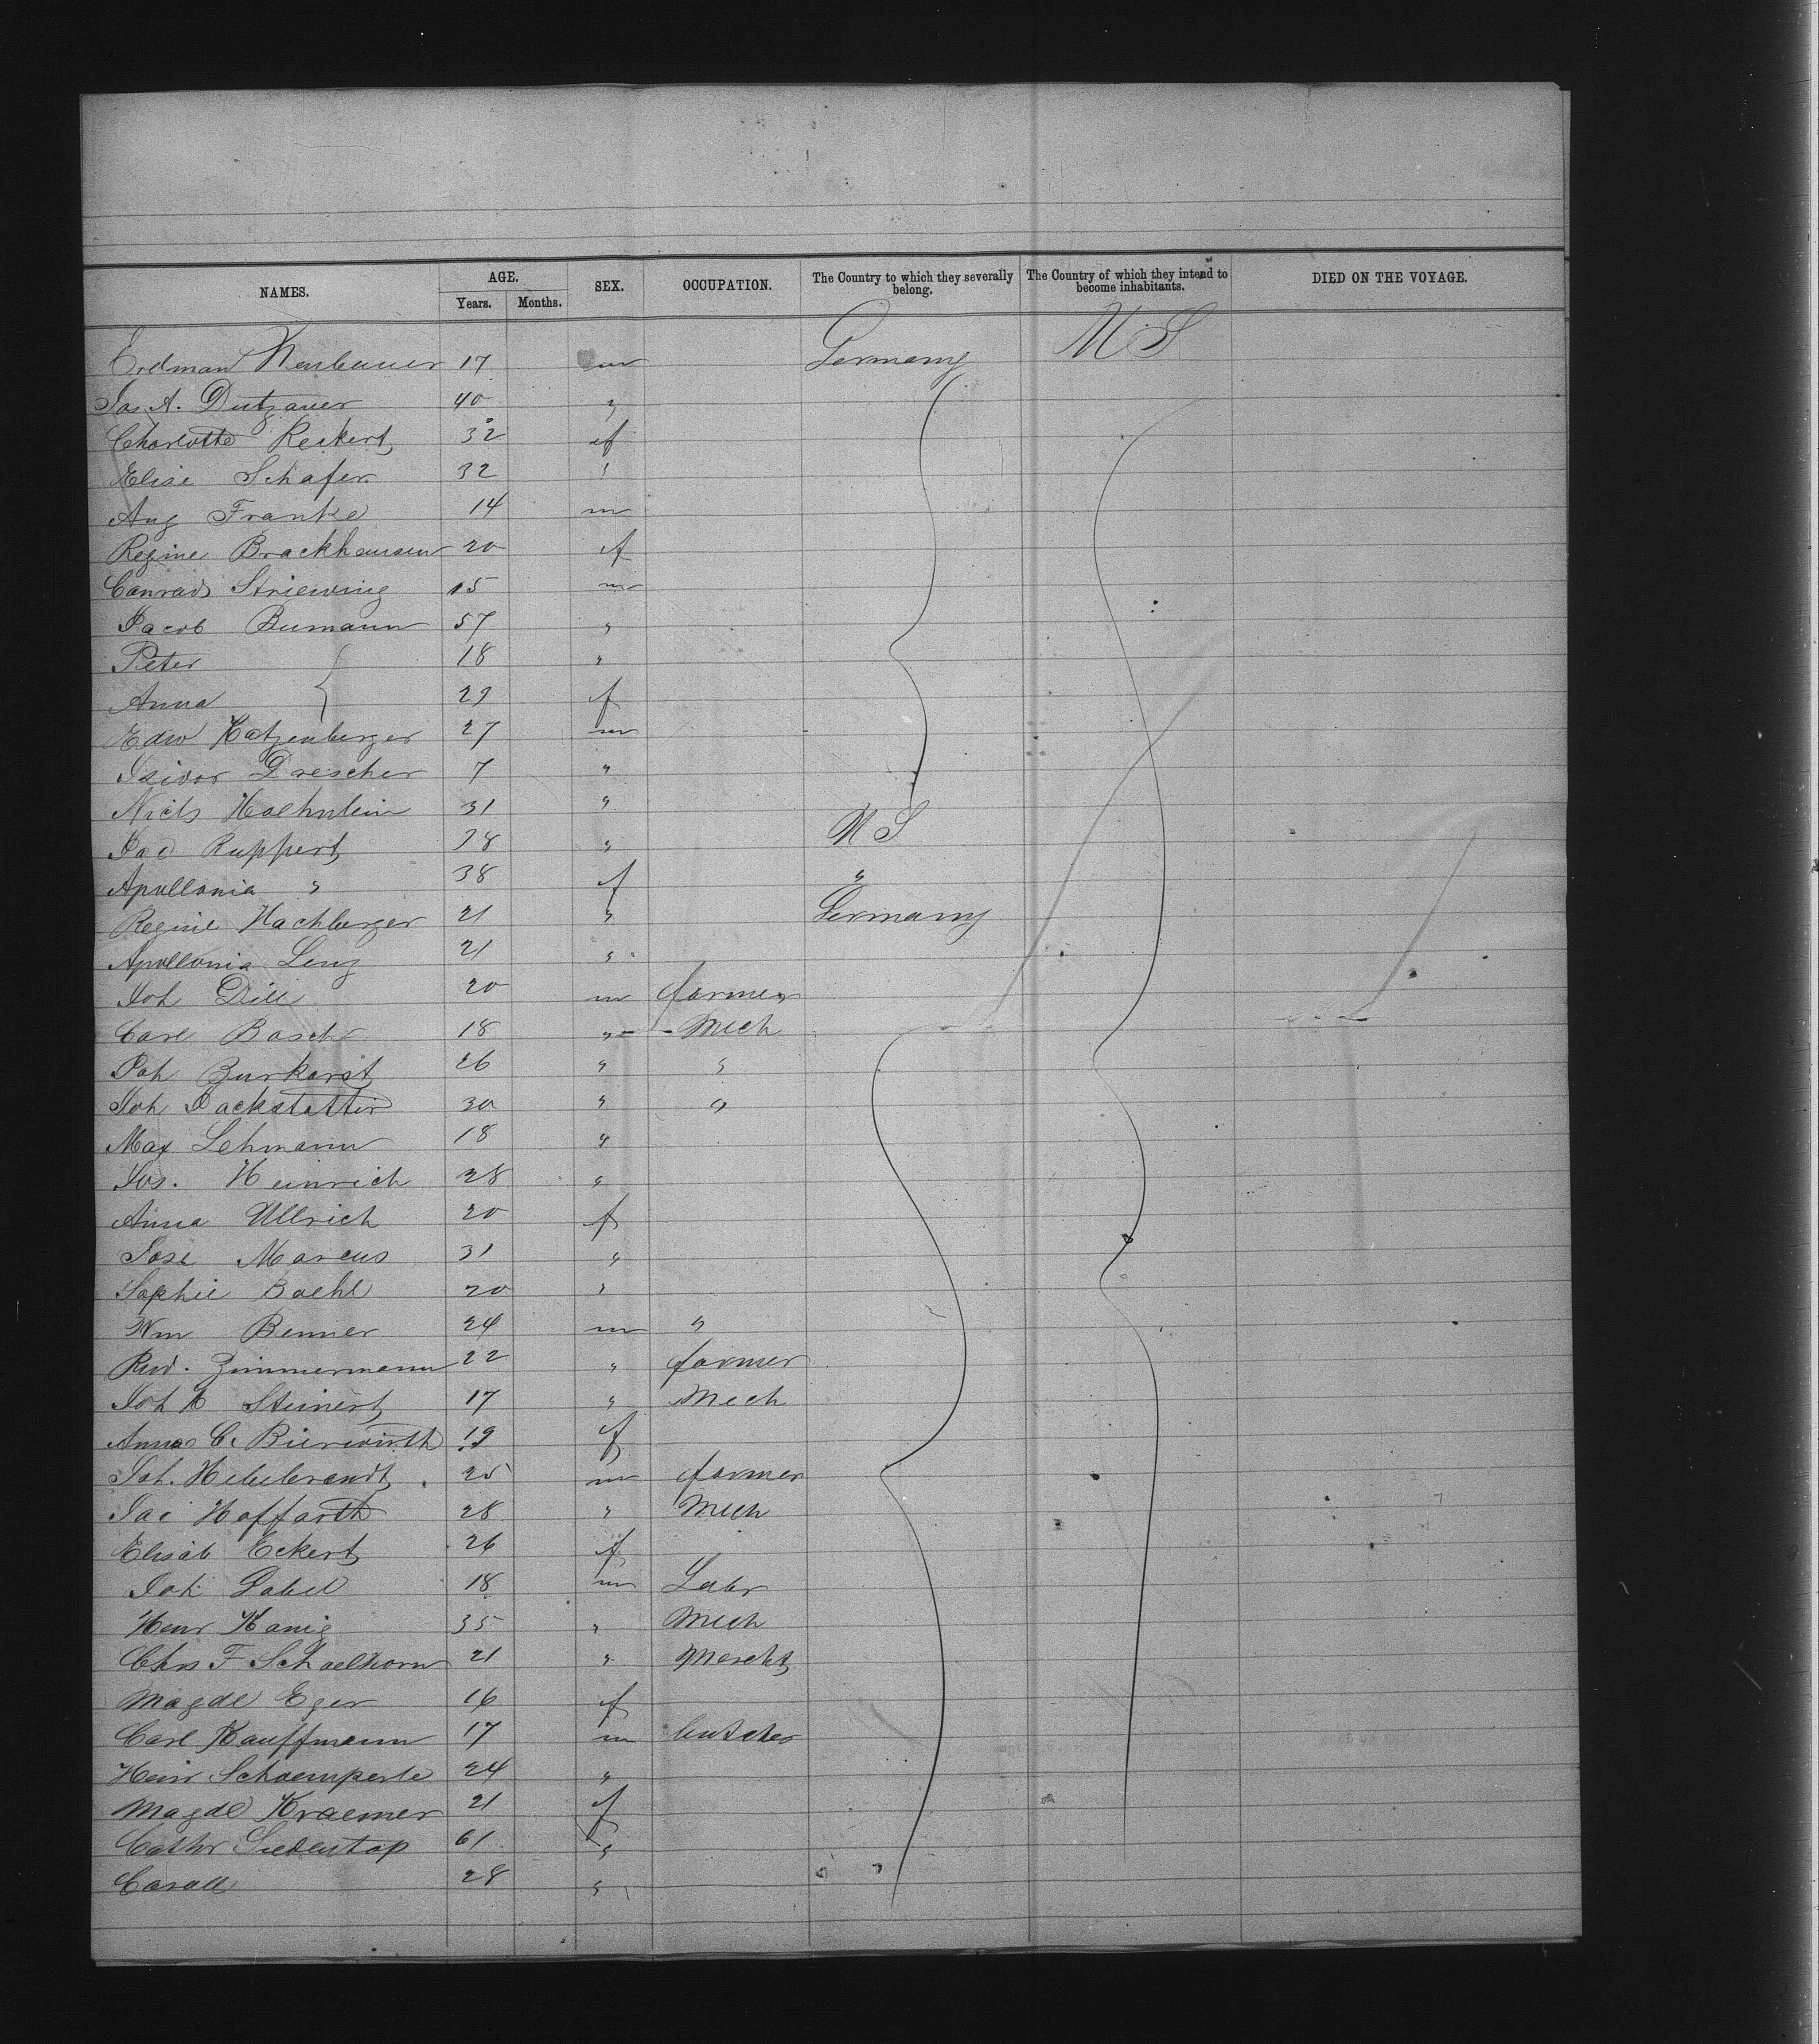 NAMES. AGE. SEX. OCCUPATION. The Country to which they severally belong. The Country of which they intend to become inhabitants. DIED ON THE VOYAGE.
Years. Months.
Erdman Neubauer 17 m Germany U S
Jos A. Dutzauer 40 "
Charlotte Reikert 32 f
Elise Schafer 32 "
Aug Franke 14 m
Regine Brackhausen 20 f
Conrad Striewing 15 m
Jacob Bumann 57 "
Peter 18 "
Anna 29 f
Edw Katzenberger 27 m
Isidor Drescher 7 "
Nicls Haehnlein 31 "
Jac Ruppert 38 " U S
Apollonia " 38 f "
Regine Hachberger 21 " Germany
Apollonia Leng 21 "
Joh Dill 20 m farmer
Carl Basch 18 " Mech
Joh Burkarat 26 " "
Joh Packstatter 30 " "
Max Lehmann 18 "
Jos. Heinrich 28 "
Anna Ullrich 20 f
Jose Marcus 31 "
Sophie Baehl 20 "
Wm Benner 24 m "
Rud. Zimmermann 22 " farmer
Joh K Steinert 17 " Mech
Anna C. Bierwirth 19 f
Joh. Hillebrandt 25 m farmer
Jac Hoffarth 28 " Mech
Elisab Eckert 26 f
Joh Label 18 m Labr
Henr Kanig 35 " Mech
Chrs F Schaelhorn 21 " Mercht
Magdl Eger 16 f
Carl Kauffmann 17 m butcher
Heinr Schaemperle 24 "
Magdl Kraemer 21 f
Cathr Siedentop 61 "
Caroll 28 "